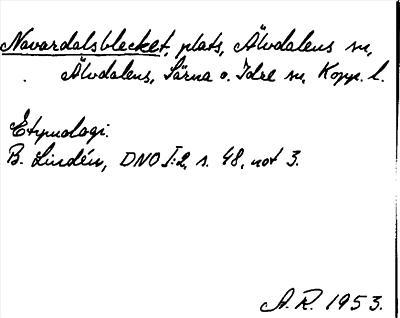 Navardalsblecket, plats, Älvdalens sn,
Älvdalens, Särna o. Idre sn, Kopp. l.
Etymologi.
B. Lindén, DNO I:2, s. 48, not 3.
A. R. 1953.